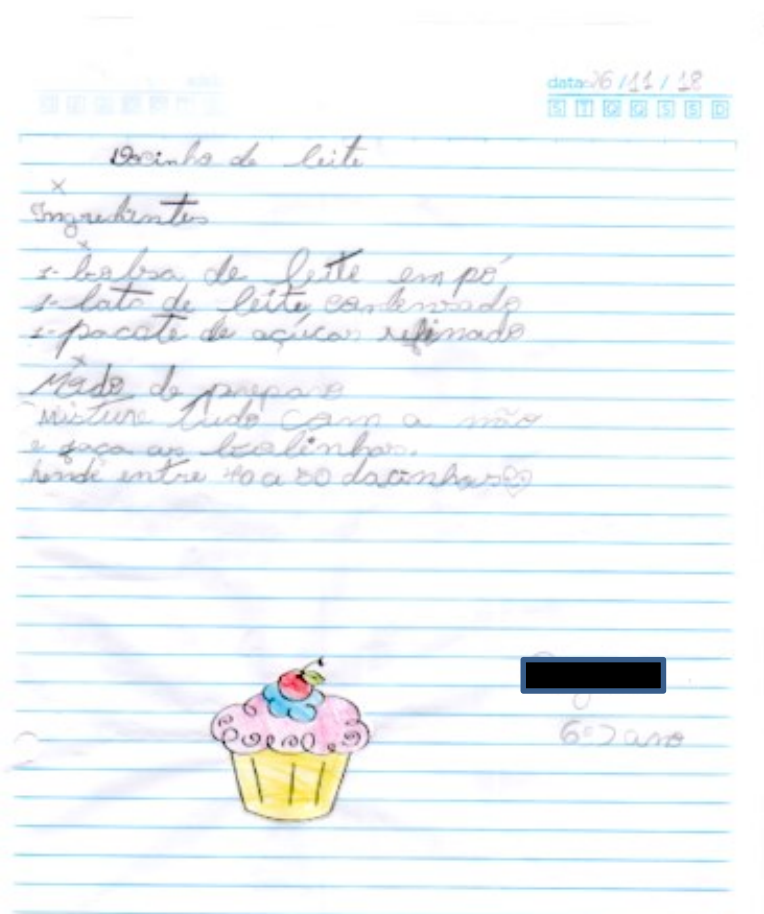 data: 26/11/18
S T Q Q S S D
Docinho de leite
Ingredientes
1- bolsa de leite em pó
1- lata de leite condensado
1- pacote de açúcar refinado
Modo de preparo
Misture tudo com a mão
e faça as bolinhas.
Rende entre 40 a 50 docinhos
6º ano